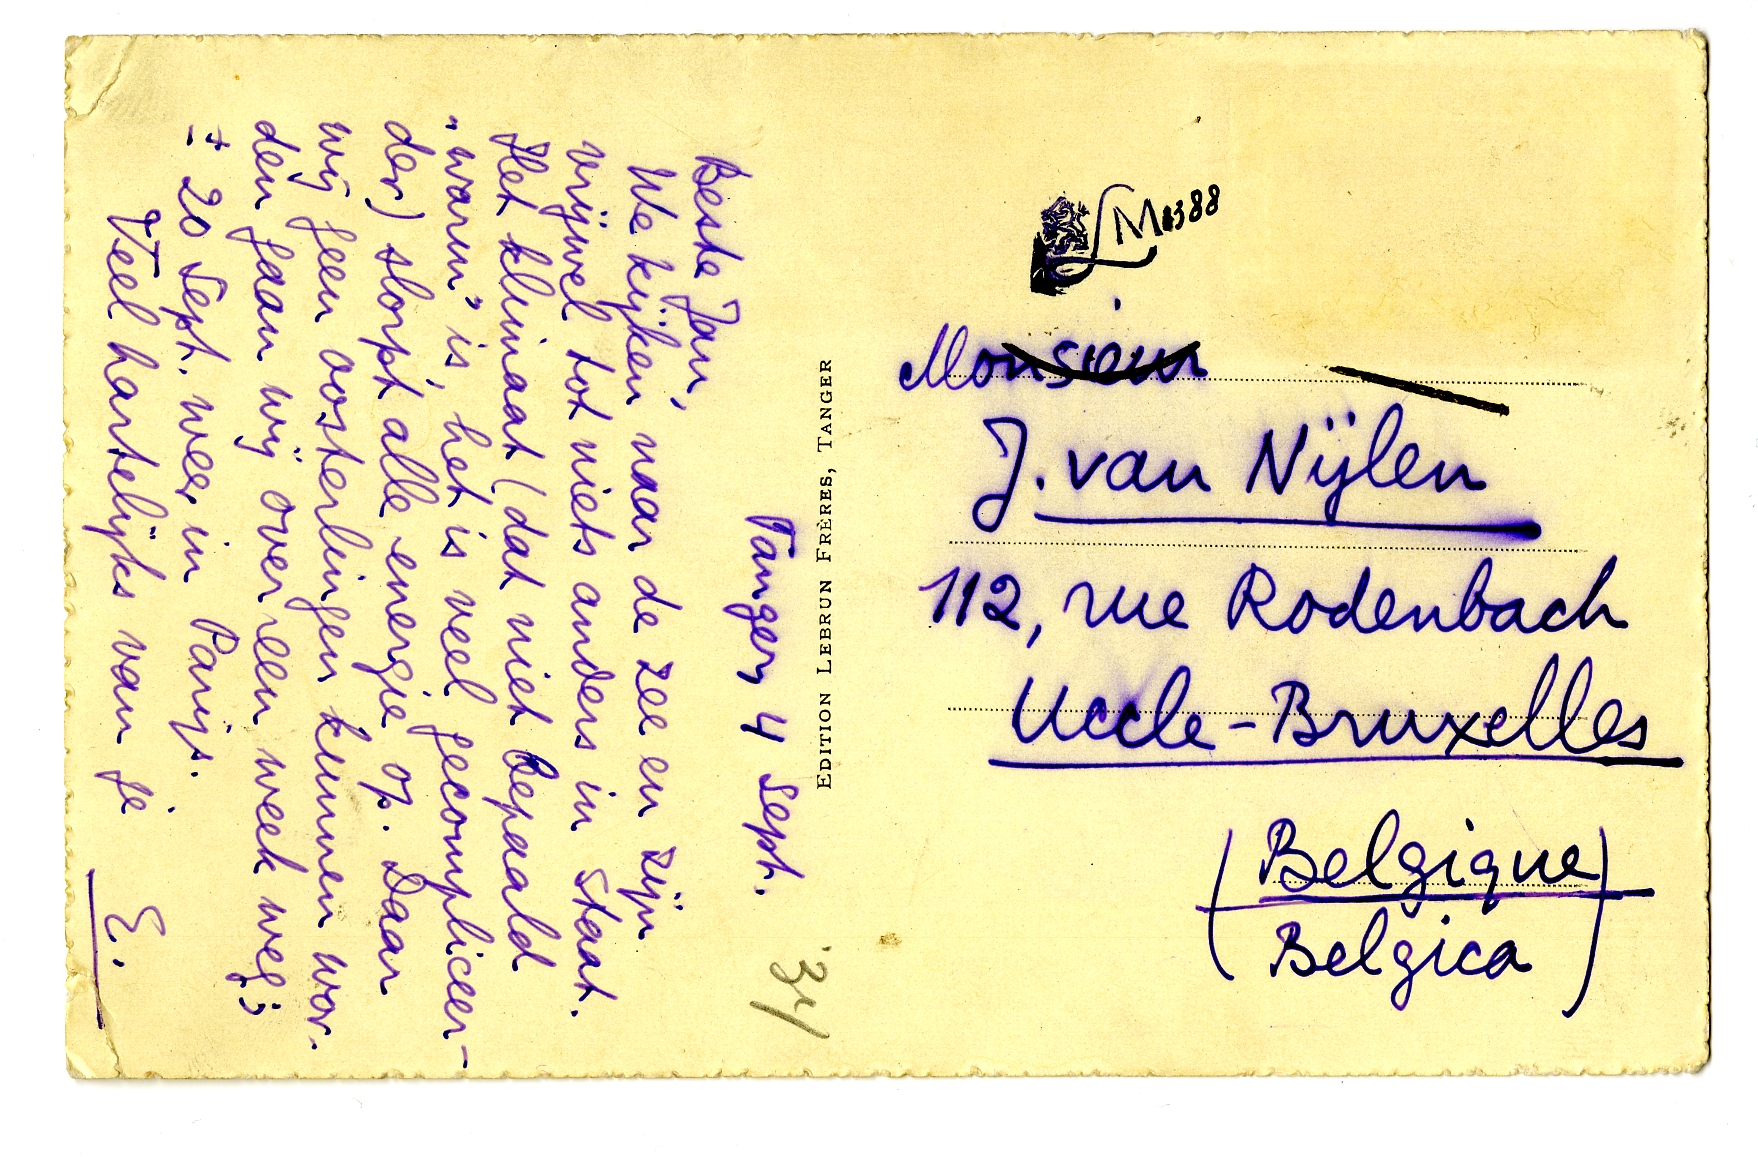 Tanger, 4 Sept.
Beste Jan,
We kijken naar de zee en zijn
vrijwel tot niets anders in staat.
Het klimaat (dat niet bepaald
„warm” is, het is veel gecompliceer-
der) slorpt alle energie op. Daar
wij geen oosterlingen kunnen wor-
den gaan wij over een week weg;
± 20 Sept. weer in Parijs.
Veel hartelijks van je
E.
'34
EDITION LEBRUN FRÈRES, TANGER
Monsieur
J. van Nijlen
112, rue Rodenbach
Uccle-Bruxelles
(Belgique
Belgica)